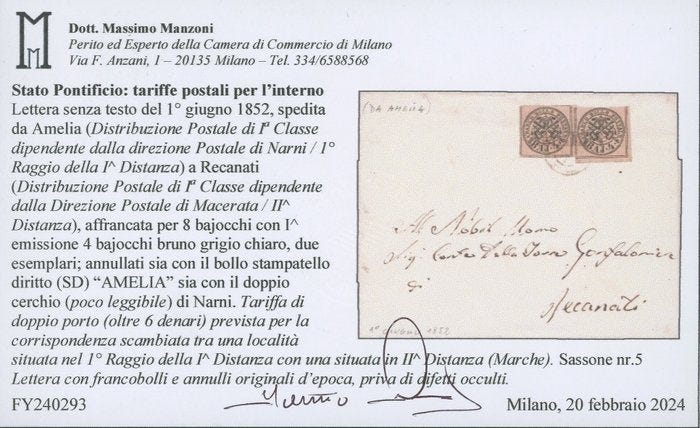 Dott. Massimo Manzoni
Perito ed Esperto della Camera di Commercio di Milano
Via F. Anzani, 1 – 20135 Milano – Tel. 334/6588568
Stato Pontificio: tariffe postali per l'interno
Lettera senza testo del 1° giugno 1852, spedita
da Amelia (Distribuzione Postale di Iª Classe
dipendente dalla direzione Postale di Narni / 1°
Raggio della I^ Distanza) a Recanati
(Distribuzione Postale di Iª Classe dipendente
dalla Direzione Postale di Macerata / II^
Distanza), affrancata per 8 bajocchi con I^
emissione 4 bajocchi bruno grigio chiaro, due
esemplari; annullati sia con il bollo stampatello
diritto (SD) “AMELIA” sia con il doppio
cerchio (poco leggibile) di Narni. Tariffa di
doppio porto (oltre 6 denari) prevista per la
corrispondenza scambiata tra una località
situata nel 1° Raggio della I^ Distanza con una situata in II^ Distanza (Marche). Sassone nr.5
Lettera con francobolli e annulli originali d'epoca, priva di difetti occulti.
FY240293
Milano, 20 febbraio 2024
(DA AMELIA)
All Nobil Uomo
Sig. Conte Della Torre Gonfaloniere
di
Recanati
1° GIUGNO 1852